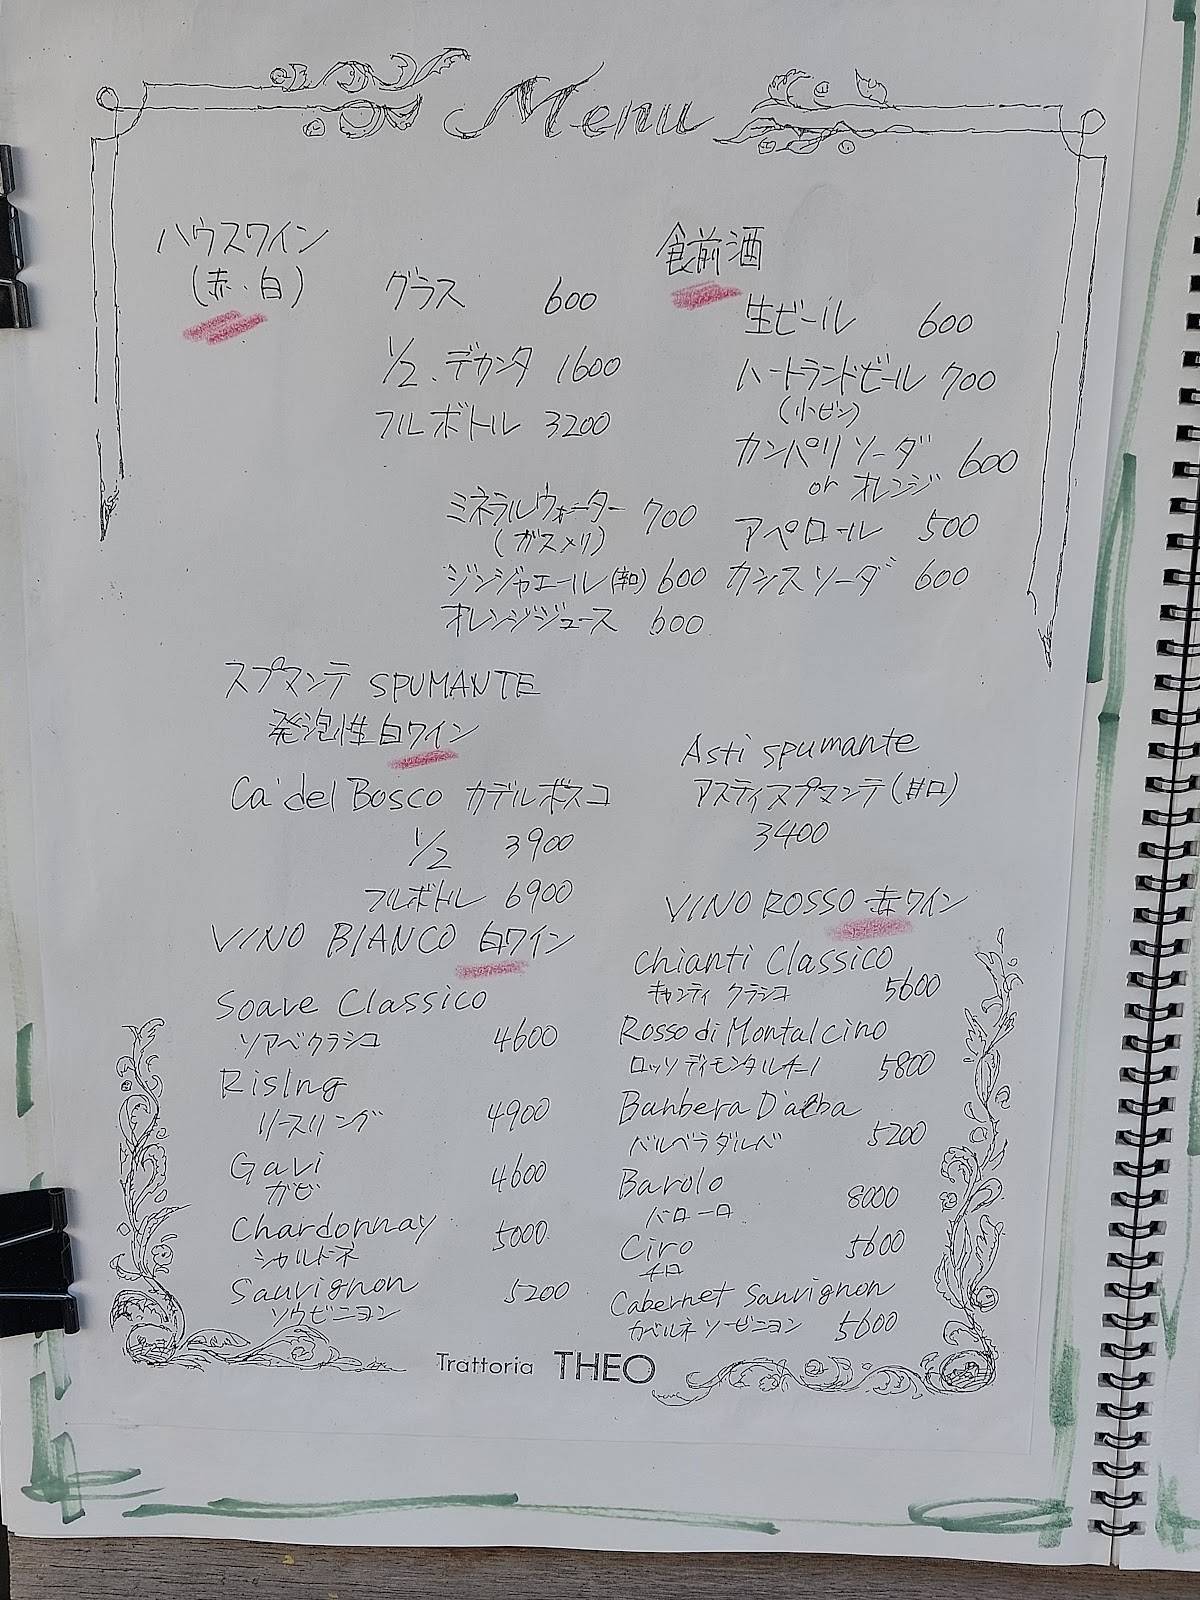 Menu
ハウスワイン
(赤・白)
グラス 600
1/2 デカンタ 1600
フルボトル 3200
食前酒
生ビール 600
ハートランドビール 700
(小ビン)
カンパリソーダ 600
or オレンジ
アペロール 500
カシスソーダ 600
ミネラルウォーター 700
(ガスメリ)
ジンジャエール(辛口) 600
オレンジジュース 600
スプマンテ SPUMANTE
発泡性白ワイン
Ca'del Bosco カデルボスコ
1/2 3900
フルボトル 6900
Asti spumante
アスティスプマンテ(甘口)
3400
VINO BIANCO 白ワイン
Soave Classico
ソアベクラシコ 4600
Rislng
リースリング 4900
Gavi 4600
ガビ
Chardonnay 5000
シャルドネ
Sauvignon 5200
ソウビニヨン
VINO ROSSO 赤ワイン
Chianti Classico
キャンティ クラシコ 5600
Rosso di Montalcino
ロッソディモンタルチーノ 5800
Banbera D'alba
バルベラダルバ 5200
Barolo 8000
バローロ
Ciro 5600
チロ
Cabernet Sauvignon
カベルネソービニヨン 5600
Trattoria THEO